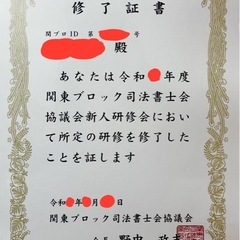 修了証書
関ブロID 第 号
殿
あなたは令和 年度
関東ブロック司法書士会
協議会新人研修会におい
て所定の研修を修了した
ことを証します
令和 年 月 日
関東ブロック司法書士会協議会
会長 野中 政志